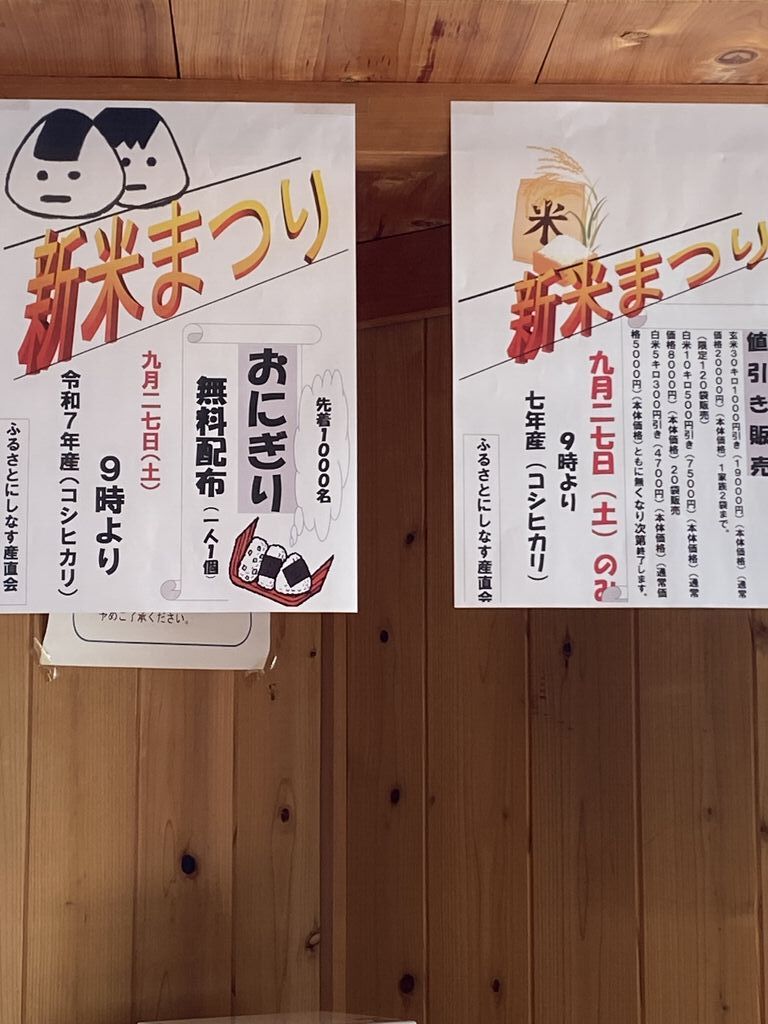 新米まつり
先着1000名
おにぎり
無料配布(一人1個)
九月二七日(土)
9時より
令和7年産(コシヒカリ)
ふるさとにしなす産直会
予めご了承ください。
米
新米まつり
値引き販売
玄米30キロ1000円引き(19000円)(本体価格)(通常
価格20000円)(本体価格)1家族2袋まで。
(限定120袋販売)
白米10キロ500円引き(7500円)(本体価格)(通常
価格8000円)(本体価格)20袋販売
白米5キロ300円引き(4700円)(本体価格)(通常価
格5000円)(本体価格)ともに無くなり次第終了します。
九月二七日(土)のみ
9時より
七年産(コシヒカリ)
ふるさとにしなす産直会